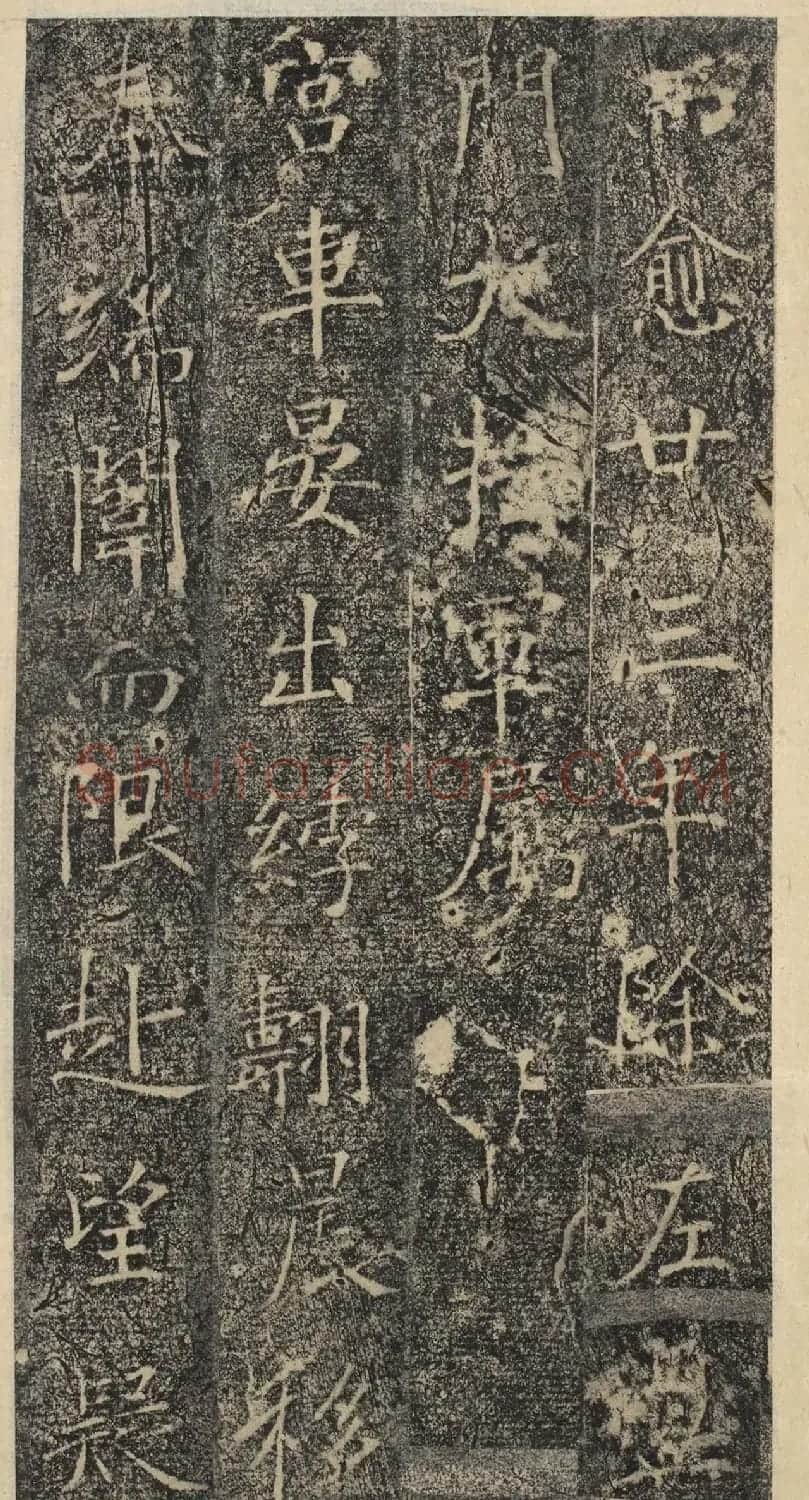 而愈廿三年除左
門大將軍属
宮車晏出綍翿晨移
奉端闈而限赴望疑
Shufaziliao.COM